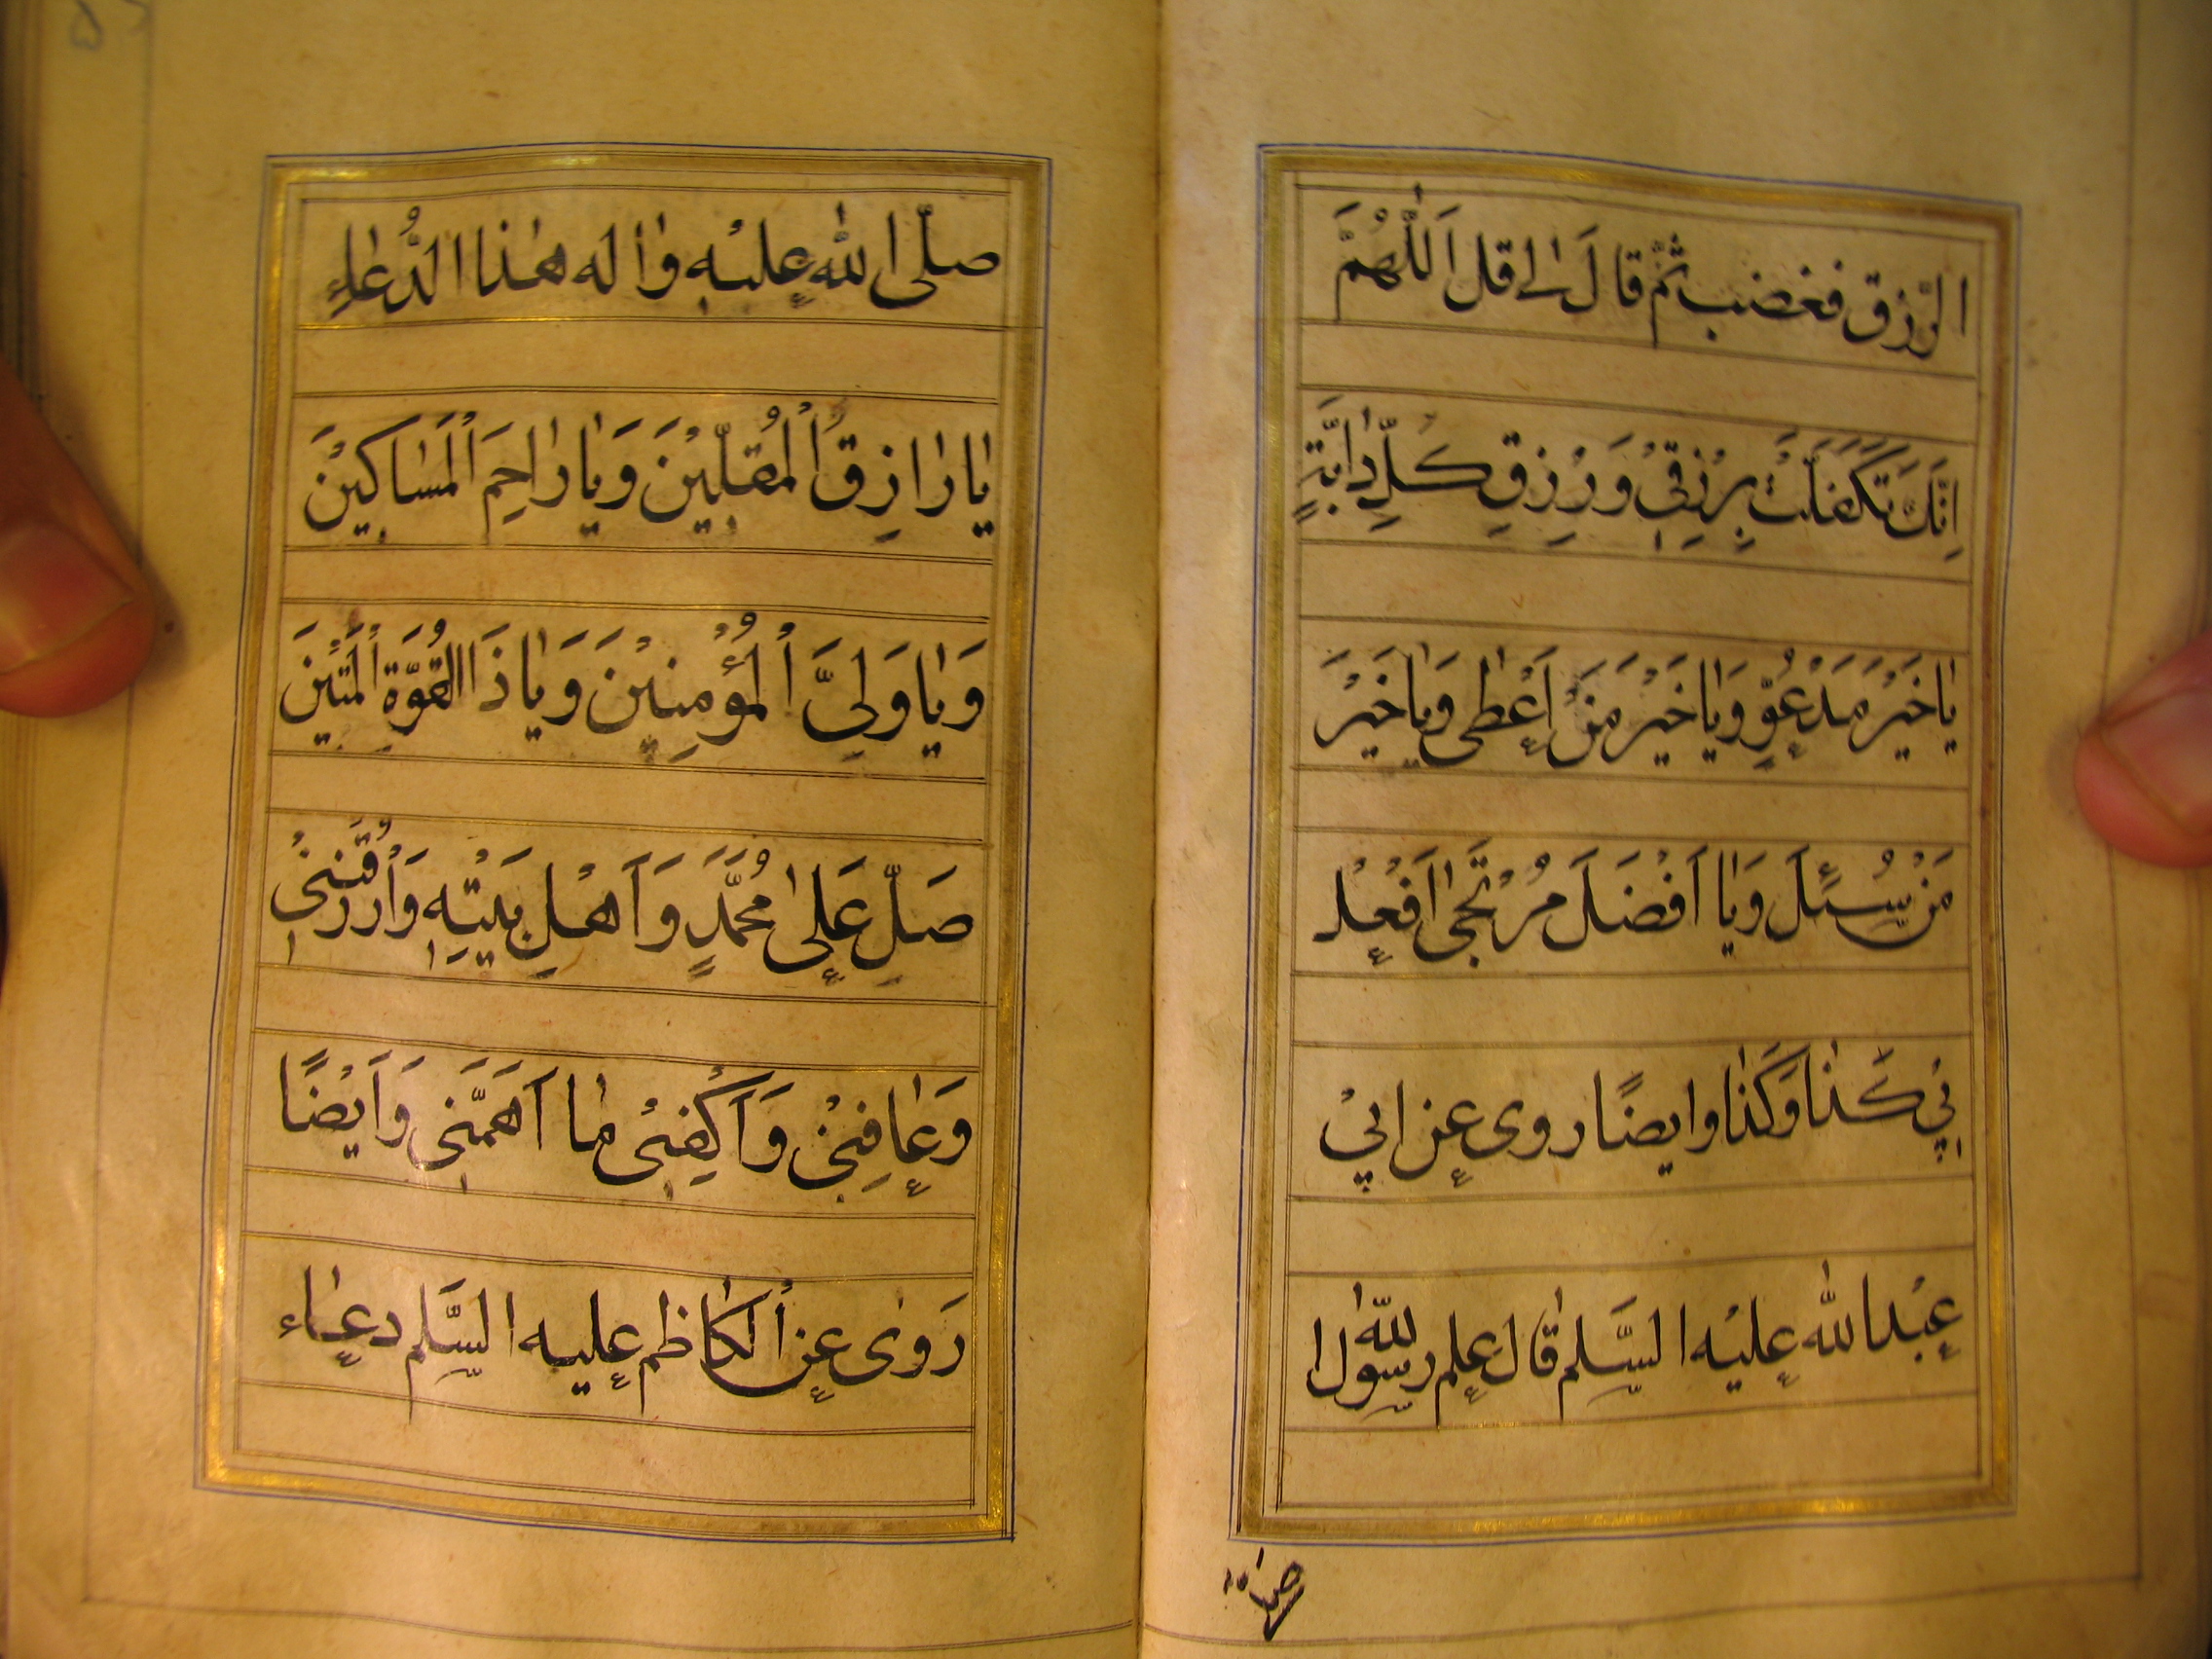 الرِّزْق فغضب ثُمَّ قالَ لٰى قل اَللّٰهُمَّ
اِنَّكَ تَكَفَّلْتَ بِرِزْقِىْ وَ رِزْقِ كُلِّ دٰابَّةٍ
يٰا خَيْرَ مَدْعُوٍّ وَيٰا خَيْرَ مَنْ اَعْطٰى وَيٰا خَيْرَ
مَنْ سُئِلَ وَيٰا اَفْضَلَ مُرْتَجٰى اَفْعُلْ
بِيْ كَذٰا وَكَذٰا وايضًا روى عن ابيْ
عبْد اللّٰه عليْه السَّلٰم قٰال علم رسوْل اللّٰه
صلّى
صلّى اللّٰه عليْه وٰاله هٰذا الدُّعٰاء
يٰا رٰازِقَ اْلمُقلّيْنَ وَيٰا رٰاحِمَ اْلمَسٰاكِيْنَ
وَيٰا وَلِىَّ اْلمُؤْمِنيْنَ وَيٰا ذَا القُوَّةِ اْلمَتيْنَ
صَلِّ عَلىٰ مُحَمَّدٍ وَ اَهْلِ بَيْتِهٖ وَاْرزُقْنىْ
وَعٰافِنىْ وَاَكْفِنىْ مٰا اَهَمَّنى وَاَيْضًا
رَوٰى عن اْلكٰاظم عليه السَّلٰم دعٰاء